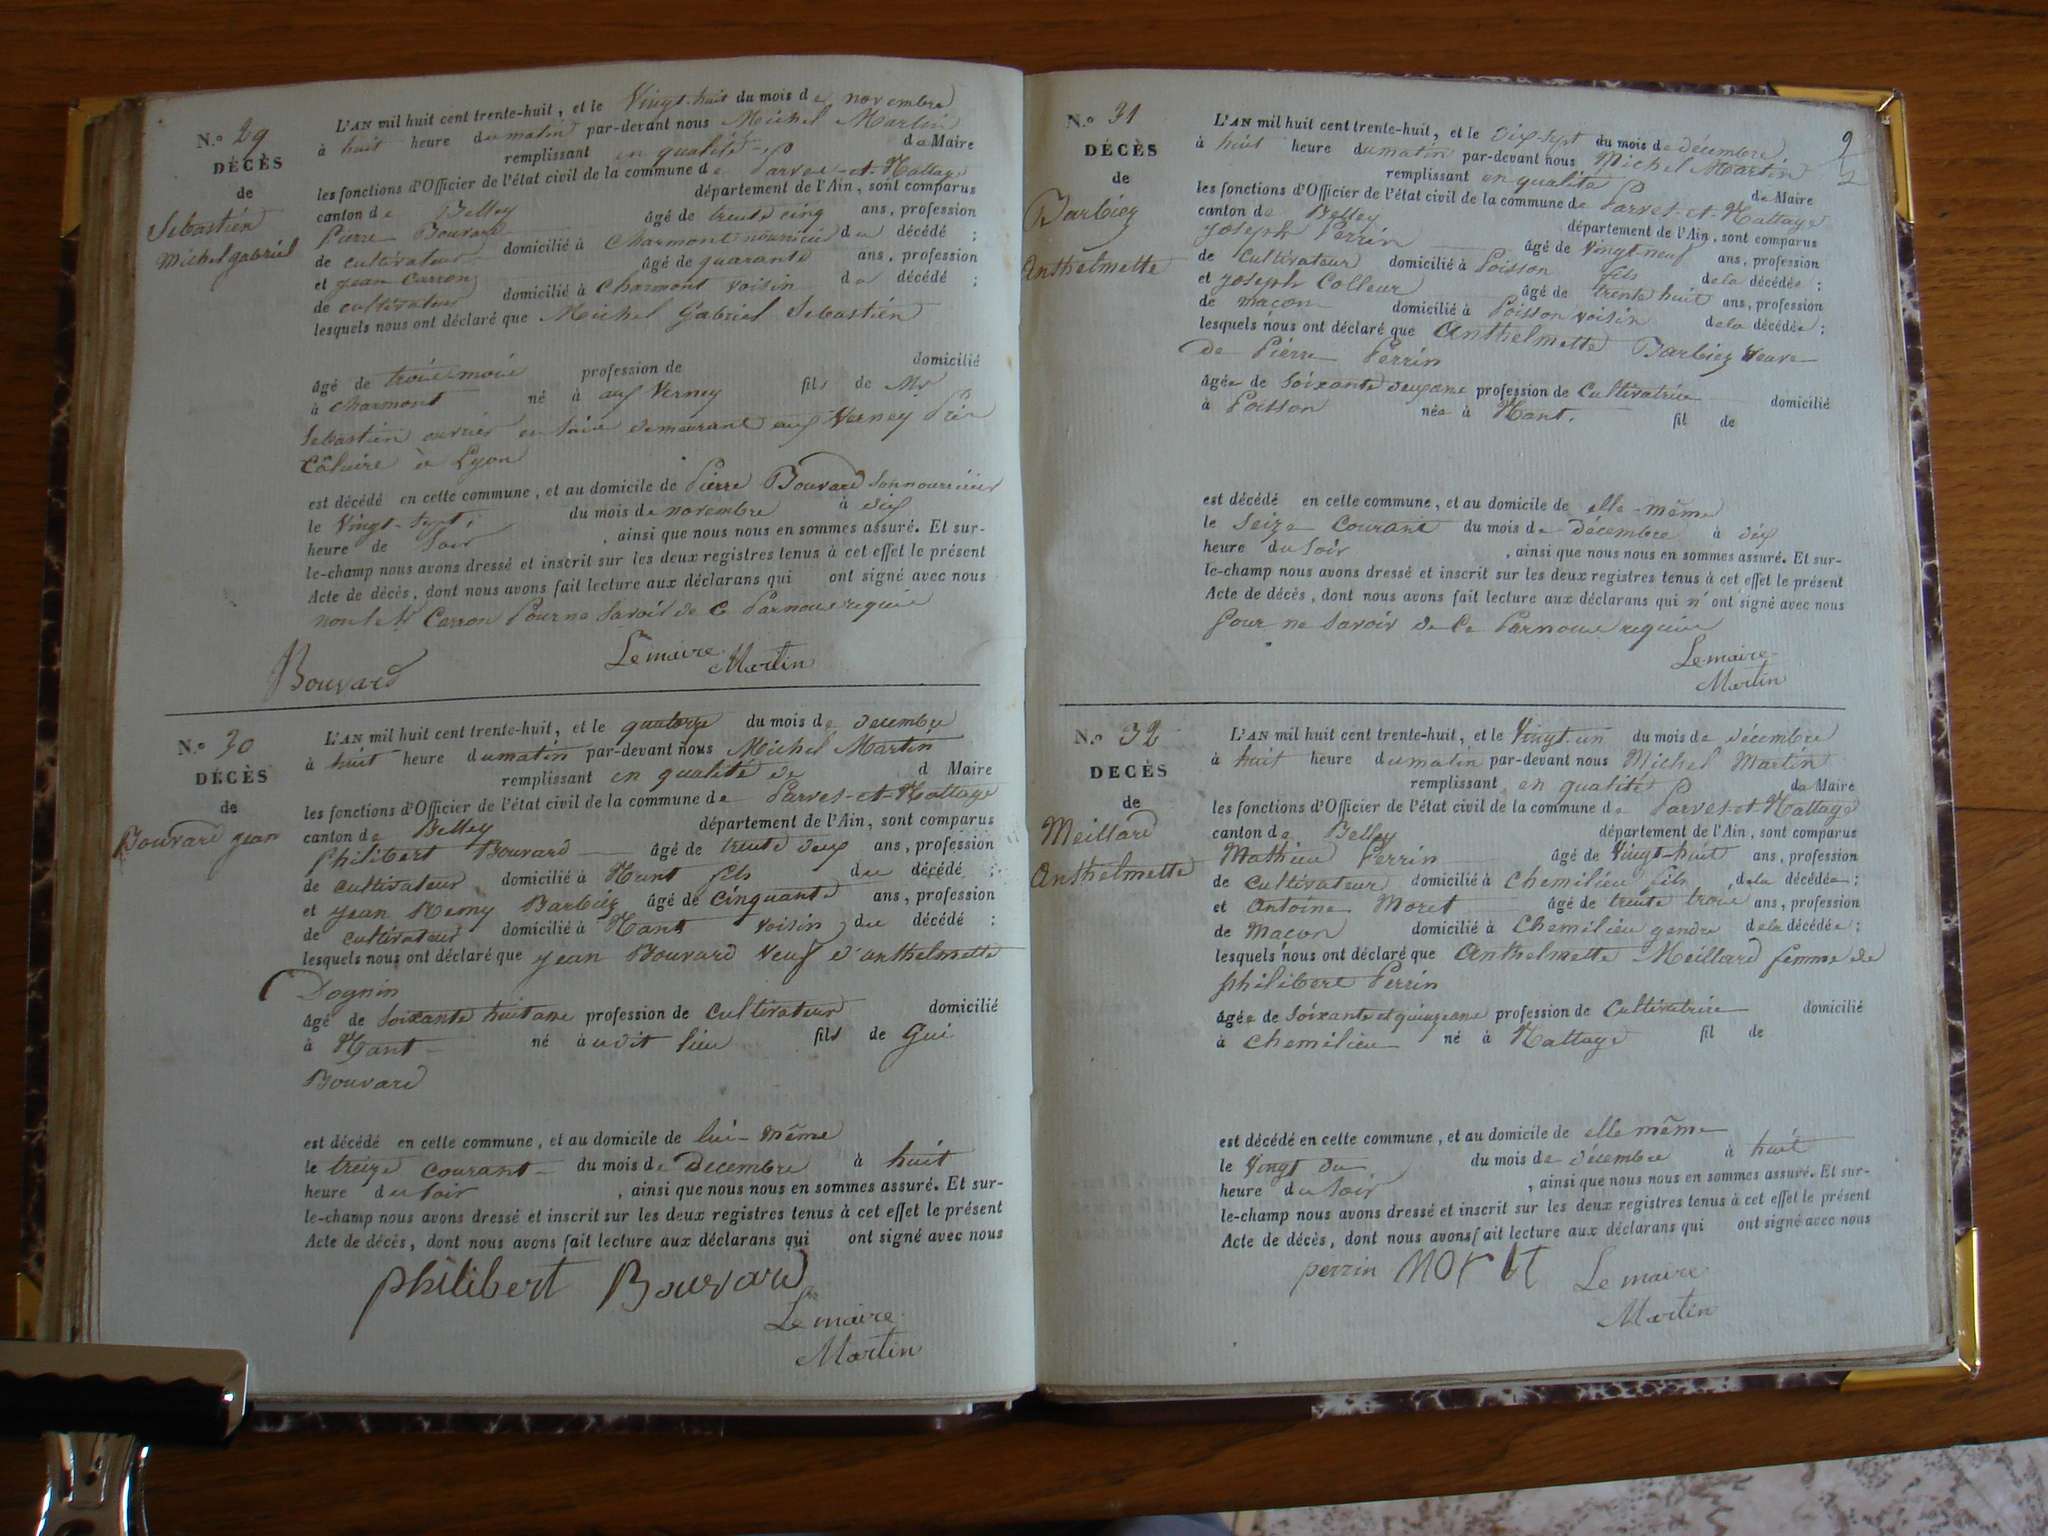 N.° 29
DÉCÈS
de
Sebastien
Michel gabriel
L'AN mil huit cent trente-huit, et le Vingt-huit du mois de novembre
à huit heure du matin par-devant nous Michel Martin
remplissant en qualité de Maire
les fonctions d'Officier de l'état civil de la commune de Parves-et-Nattage
canton de Belley département de l'Ain, sont comparus
Pierre Bouvard âgé de trente cinq ans, profession
de cultivateur domicilié à Charmont nourricier du décédé ;
et jean Carron âgé de quarante ans, profession
de cultivateur domicilié à Charmont voisin du décédé ;
lesquels nous ont déclaré que Michel Gabriel Sebastien
âgé de trois mois profession de domicilié
à Charmont né à aux Verney fils de Mr
Sebastien ouvrier en soie demeurant aux Verney Près
Câluire à Lyon
est décédé en cette commune, et au domicile de Pierre Bouvard son nourricier
le Vingt-sept du mois de novembre à dix
heure de soir , ainsi que nous nous en sommes assuré. Et sur-
le-champ nous avons dressé et inscrit sur les deux registres tenus à cet effet le présent
Acte de décès, dont nous avons fait lecture aux déclarans qui ont signé avec nous
non le dt Carron Pour ne savoir de ce Par nous requis
Bouvard Le maire
Martin
N.° 30
DÉCÈS
de
Bouvard jean
L'AN mil huit cent trente-huit, et le quatorze du mois de decembre
à huit heure du matin par-devant nous Michel Martin
remplissant en qualité de d Maire
les fonctions d'Officier de l'état civil de la commune de Parves-et-Nattage
canton de Belley département de l'Ain, sont comparus
Philibert Bouvard âgé de trente deux ans, profession
de cultivateur domicilié à Nant fils du décédé ;
et jean Remy Barbiez âgé de cinquante ans, profession
de cultivateur domicilié à Nant voisin du décédé :
lesquels nous ont déclaré que jean Bouvard veuf d'anthelmette
Dognin
âgé de soixante huit ans profession de cultivateur domicilié
à Nant né à udit lieu fils de Gui
Bouvard
est décédé en cette commune, et au domicile de lui-même
le treize courant du mois de Decembre à huit
heure du soir , ainsi que nous nous en sommes assuré. Et sur-
le-champ nous avons dressé et inscrit sur les deux registres tenus à cet effet le présent
Acte de décès, dont nous avons fait lecture aux déclarans qui ont signé avec nous
philibert Bouvard
Le maire
Martin
N.° 31
DÉCÈS
de
Barbiez
Anthelmette
L'AN mil huit cent trente-huit, et le dix-sept du mois de décembre
à huit heure du matin par-devant nous Michel Martin
remplissant en qualité de Maire
les fonctions d'Officier de l'état civil de la commune de Parves-et-Nattage
canton de Belley département de l'Ain, sont comparus
joseph Perrin âgé de vingt-neuf ans, profession
de Cultivateur domicilié à Poisson fils de la décédée ;
et joseph Colleur âgé de trente huit ans, profession
de macon domicilié à Poisson voisin de la décédée ;
lesquels nous ont déclaré que Anthelmette Barbiez veuve
de Pierre Perrin
âgée de soixante deux ans profession de Cultivatrice domicilié
à Poisson née à Nant. fil de
est décédé en cette commune, et au domicile de elle-même
le seize courant du mois de décembre à dix
heure du soir , ainsi que nous nous en sommes assuré. Et sur-
le-champ nous avons dressé et inscrit sur les deux registres tenus à cet effet le présent
Acte de décès, dont nous avons fait lecture aux déclarans qui n'ont signé avec nous
Pour ne savoir de ce Par nous requis
Le maire
Martin
N.° 32
DECÈS
de
Meillard
Anthelmette
L'AN mil huit cent trente-huit, et le Vingt-un du mois de décembre
à huit heure du matin par-devant nous Michel Martin
remplissant en qualité de Maire
les fonctions d'Officier de l'état civil de la commune de Parves-et-Nattage
canton de Belley département de l'Ain, sont comparus
Mathieu Perrin âgé de Vingt-huit ans, profession
de cultivateur domicilié à Chemilieu fils de la décédée ;
et Antoine Moret âgé de trente trois ans, profession
de Macon domicilié à Chemilieu gendre de la décédée ;
lesquels nous ont déclaré que Anthelmette Meillard femme de
philibert Perrin
âgée de soixante et quinze ans profession de Cultivatrice domicilié
à chemilieu né à Nattage fil de
est décédé en cette commune, et au domicile de elle même
le Vingt du du mois de décembre à huit
heure du soir , ainsi que nous nous en sommes assuré. Et sur-
le-champ nous avons dressé et inscrit sur les deux registres tenus à cet effet le présent
Acte de décès, dont nous avons fait lecture aux déclarans qui ont signé avec nous
perrin Moret Le maire
Martin